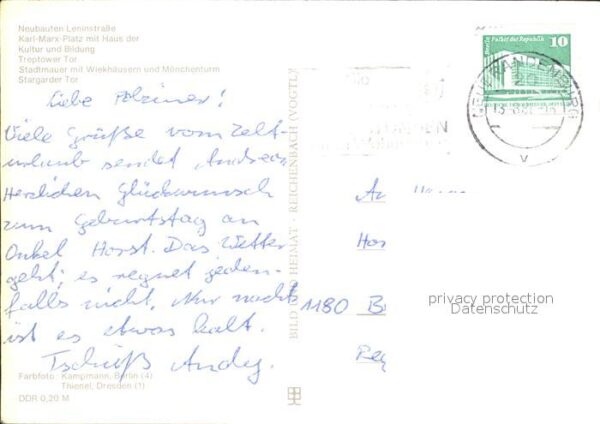 Neubauten Leninstraße
Karl-Marx-Platz mit Haus der
Kultur und Bildung
Treptower Tor
Stadtmauer mit Wiekhäusern und Mönchenturm
Stargarder Tor
Liebe
Viele Grüße vom Zelt-
urlaub sendet Andreas
Herzlichen Glückwunsch
zum Geburtstag an
Onkel Horst. Das Wetter
geht; es regnet jeden-
falls nicht. Nur nachts
ist es etwas kalt.
Tschüß Andy.
Farbfoto: Kampmann, Berlin (4)
Thienel, Dresden (1)
DDR 0,20 M
BILD HEIMAT · REICHENBACH (VOGTL)
Berlin Palast der Republik
10
NEUBRANDENBURG
An
Hor
1180 B
privacy protection
Datenschutz